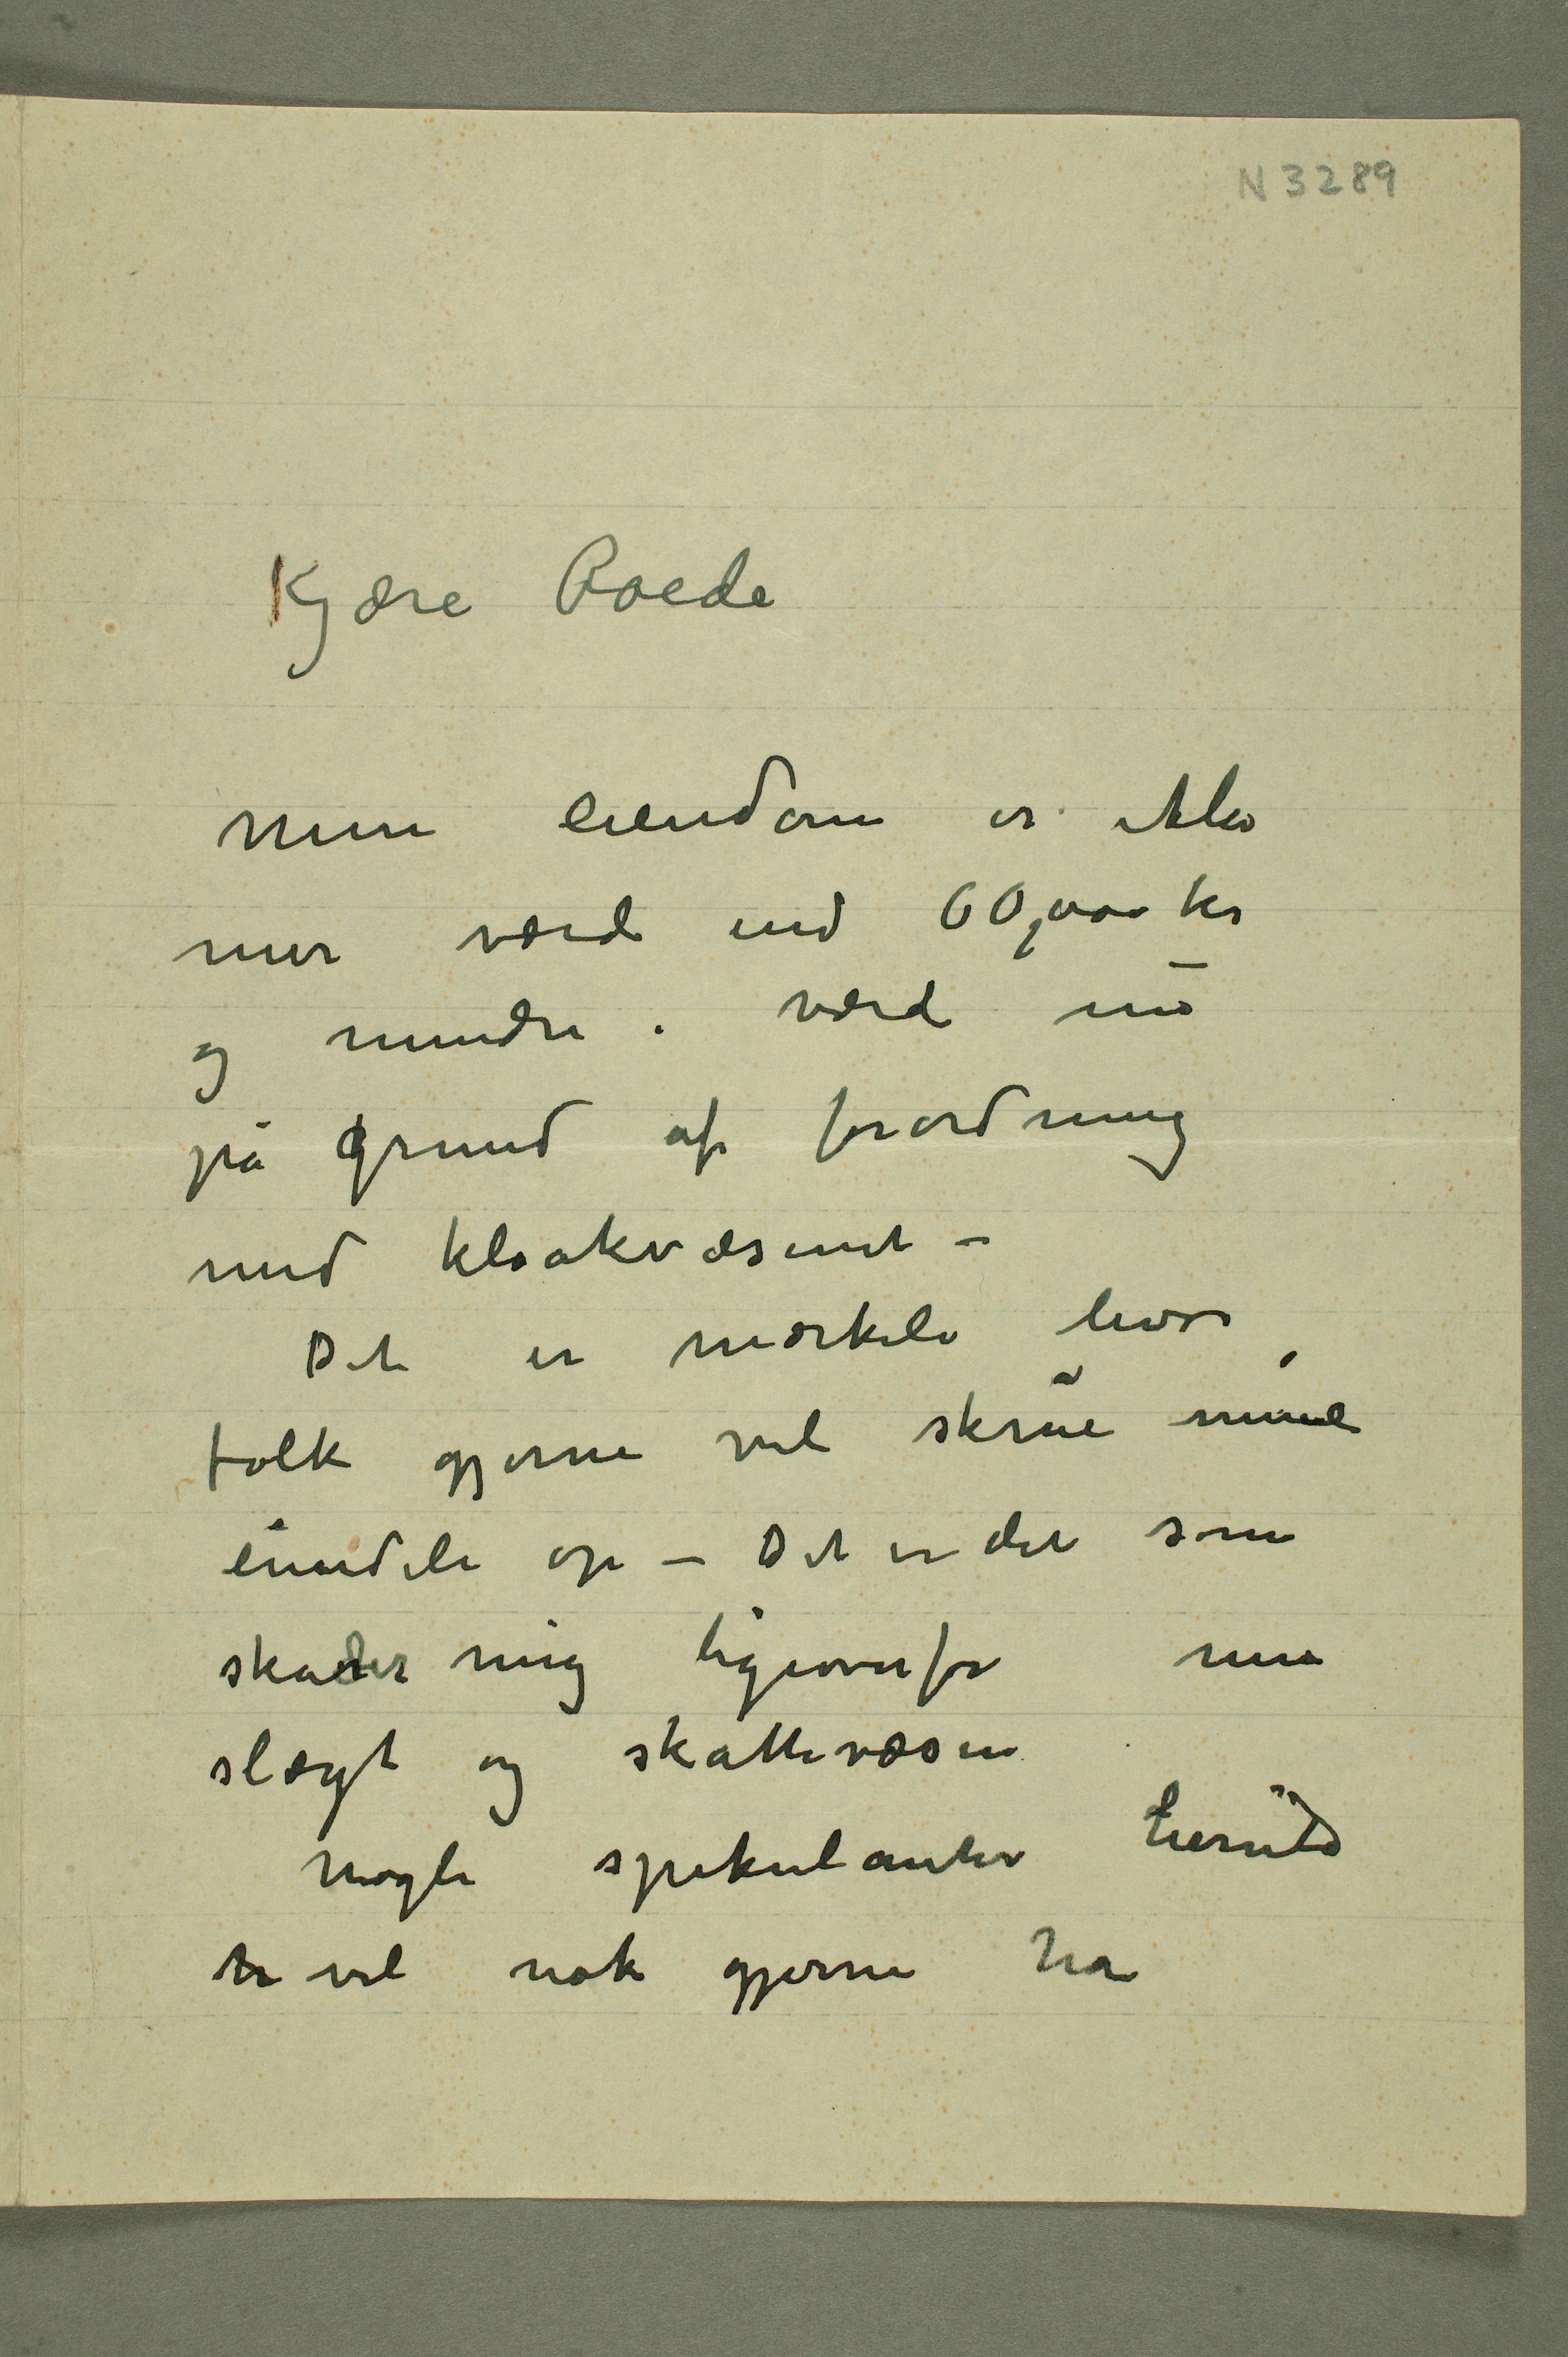 N 3289
Kjære Roede
Min eiendom er ikke
mer værd end 60,000 kr
og mindre værd nu
på grund af forordning
med kloakvæsenet –
Det er mærkeli hvor
folk gjerne vil skrue mine
eiendele op – Det er det som
skader mig ligeoverfor min
slægt og skattevæsen
Nogle spekulanter herude
vil nok gjerne ha